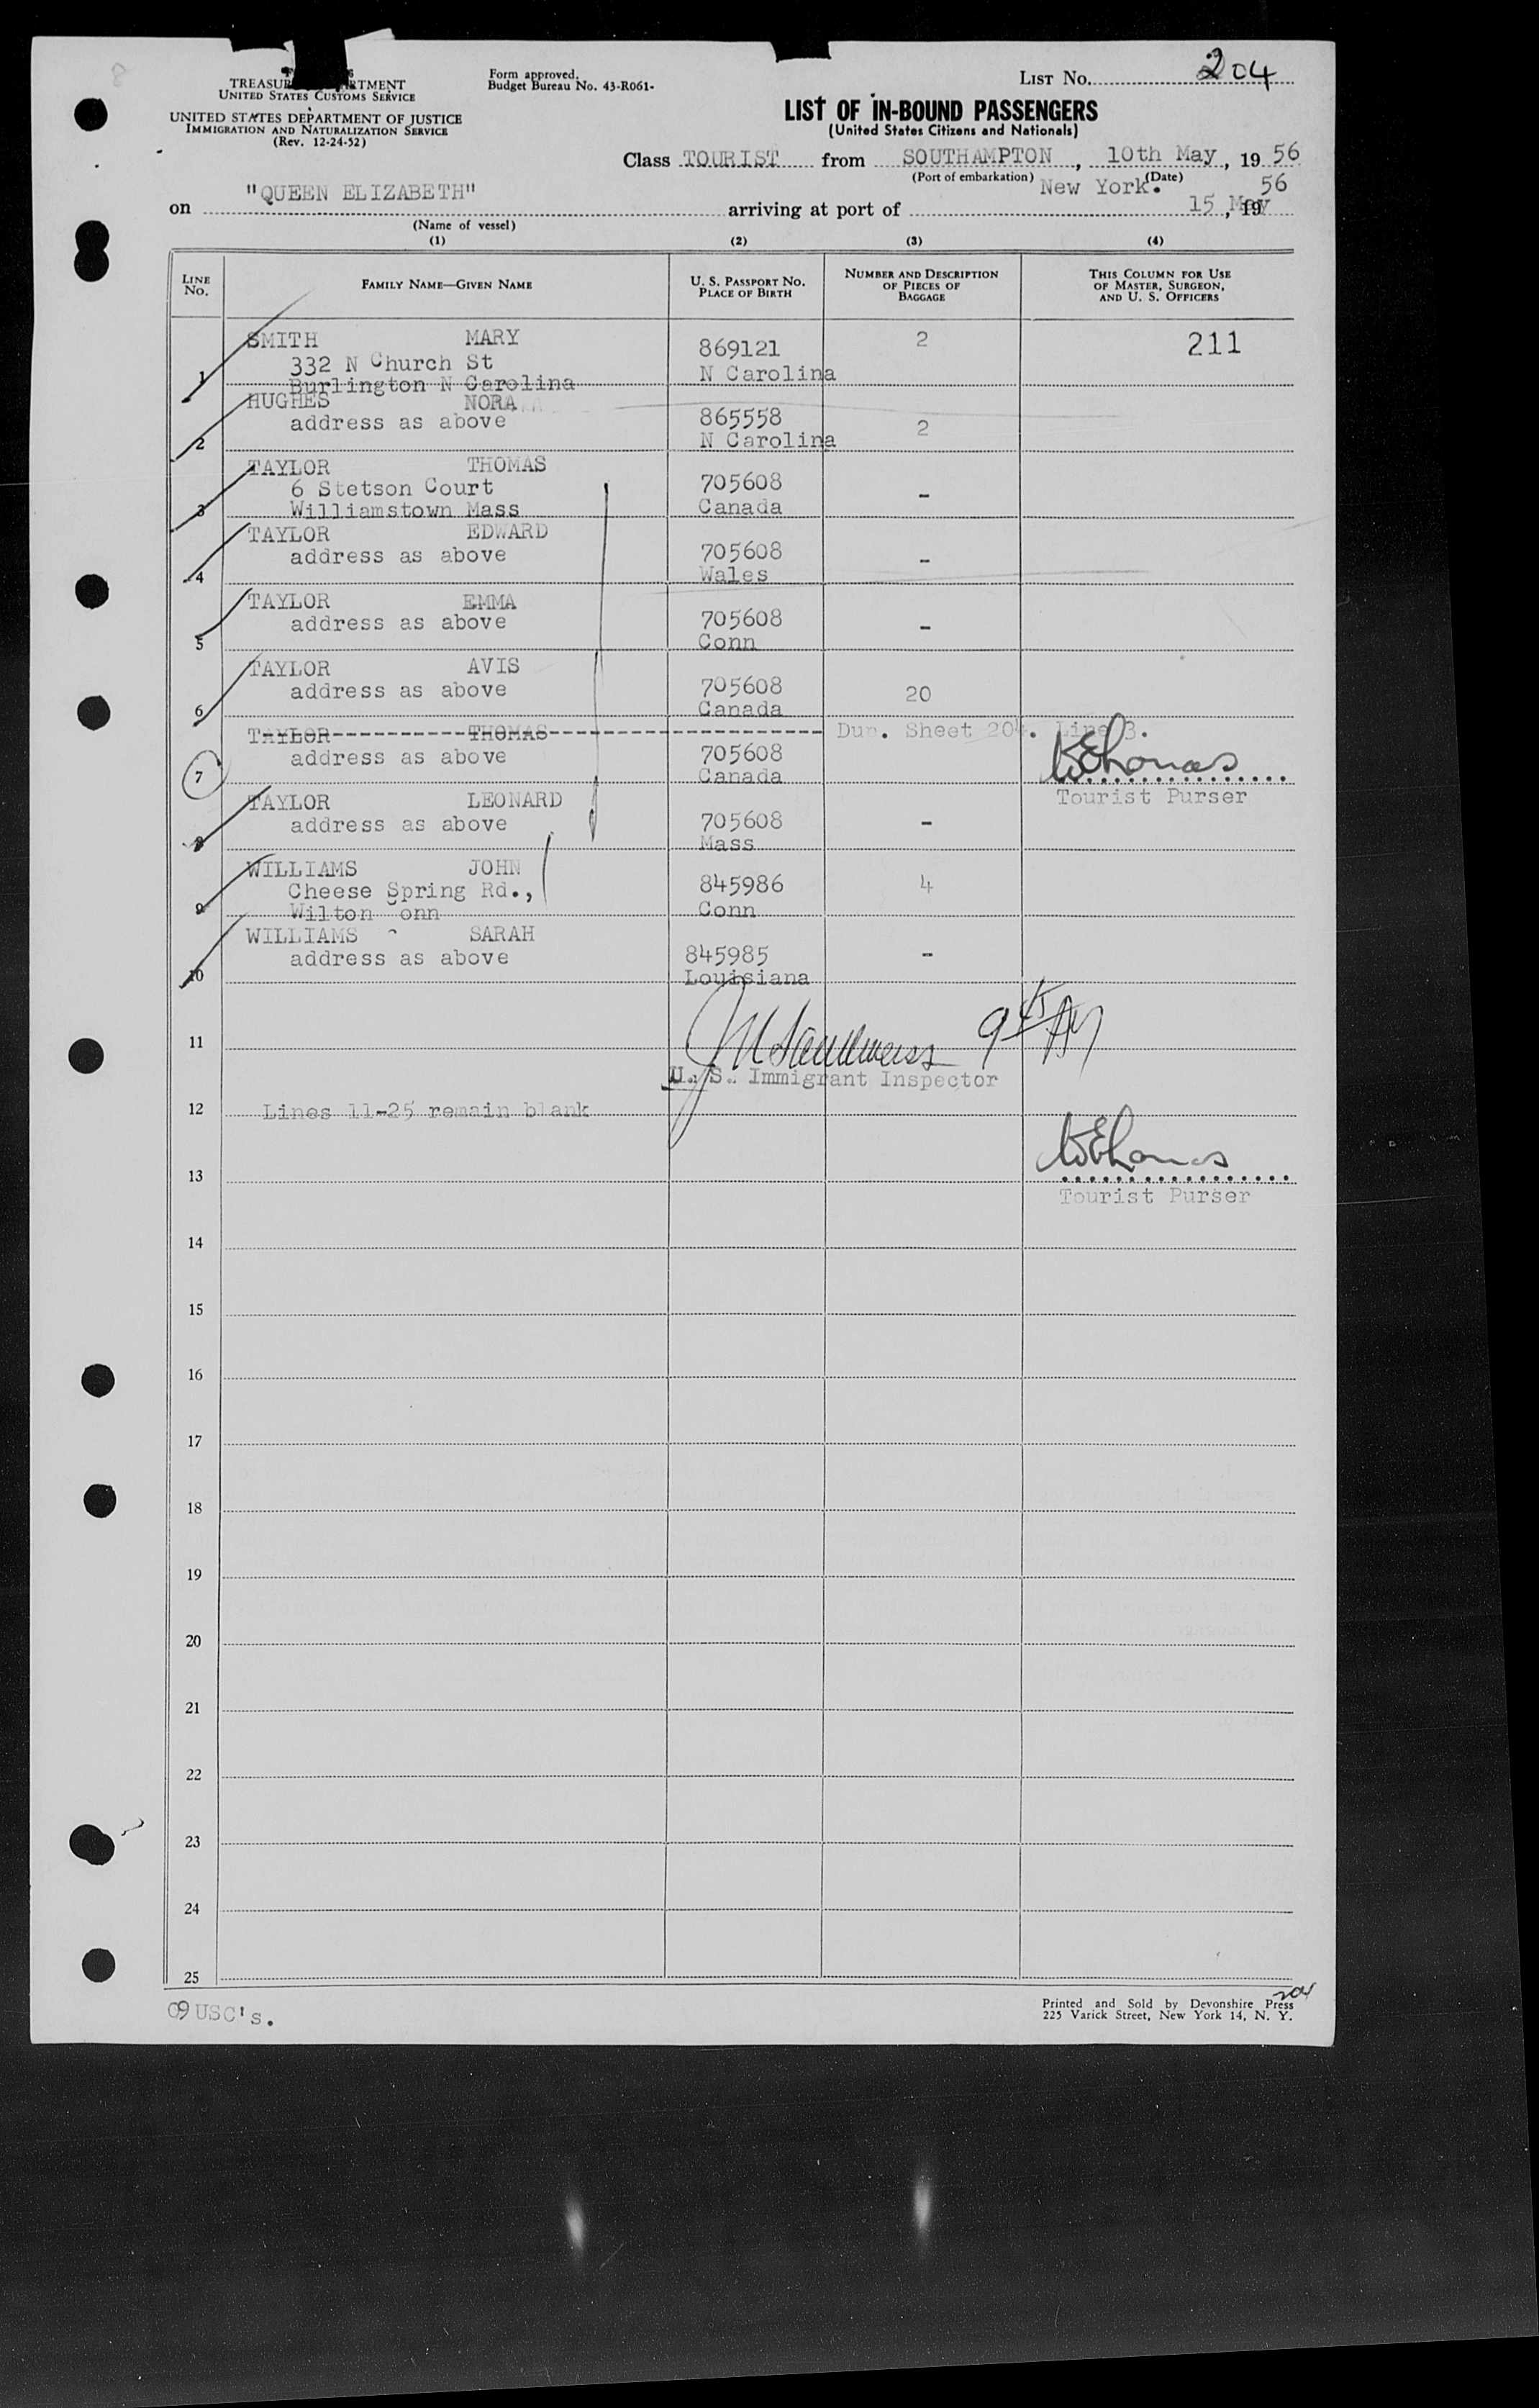 TREASUR RTMENT
UNITED STATES CUSTOMS SERVICE
UNITED STATES DEPARTMENT OF JUSTICE
IMMIGRATION AND NATURALIZATION SERVICE
(Rev. 12-24-52)
Form approved.
Budget Bureau No. 43-R061-
LIST NO. 204
LIST OF IN-BOUND PASSENGERS
(United States Citizens and Nationals)
Class TOURIST from SOUTHAMPTON, 10th May, 19 56
(Port of embarkation) (Date)
on "QUEEN ELIZABETH" arriving at port of New York. 15 May, 19 56
(Name of vessel)
(1) (2) (3) (4)
LINE NO. FAMILY NAME—GIVEN NAME U. S. PASSPORT NO. PLACE OF BIRTH NUMBER AND DESCRIPTION OF PIECES OF BAGGAGE THIS COLUMN FOR USE OF MASTER, SURGEON, AND U. S. OFFICERS
SMITH MARY 869121 2 211
332 N Church St N Carolina
1 Burlington N Carolina
HUGHES NORA 865558 2
2 address as above N Carolina
TAYLOR THOMAS 705608 -
6 Stetson Court
3 Williamstown Mass Canada
TAYLOR EDWARD 705608 -
address as above
4 Wales
TAYLOR EMMA 705608 -
address as above
5 Conn
TAYLOR AVIS 705608 20
address as above
6 Canada
TAYLOR----------THOMAS-------------------- Dup. Sheet 204. Line 3.
address as above 705608
7 Canada
Tourist Purser
TAYLOR LEONARD 705608 -
address as above
8 Mass
WILLIAMS JOHN 845986 4
Cheese Spring Rd.,
9 Wilton Conn Conn
WILLIAMS SARAH 845985 -
address as above
10 Louisiana
11
U. S. Immigrant Inspector
12 Lines 11-25 remain blank
13
Tourist Purser
14
15
16
17
18
19
20
21
22
23
24
25
09 USC's.
204
Printed and Sold by Devonshire Press
225 Varick Street, New York 14, N. Y.